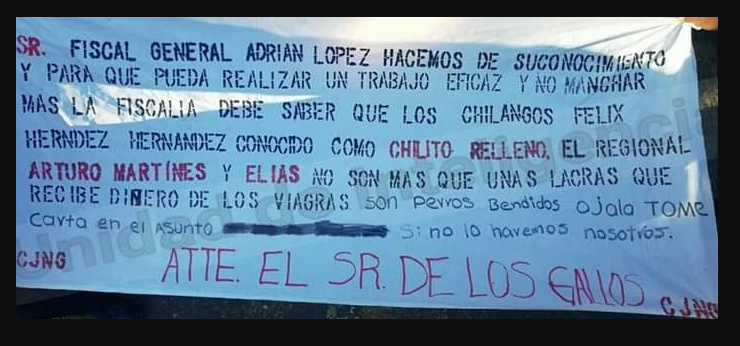 SR. FISCAL GENERAL ADRIAN LOPEZ HACEMOS DE SUCONOCIMIENTO
Y PARA QUE PUEDA REALIZAR UN TRABAJO EFICAZ Y NO MANCHAR
MAS LA FISCALIA DEBE SABER QUE LOS CHILANGOS FELIX
HERNDEZ HERNANDEZ CONOCIDO COMO CHILITO RELLENO, EL REGIONAL
ARTURO MARTÍNES Y ELIAS NO SON MAS QUE UNAS LACRAS QUE
RECIBE DINERO DE LOS VIAGRAS son Perros Bendidos Ojala TOME
Carta en el Asunto Si no lo havemos nosotros.
CJNG ATTE. EL SR. DE LOS GALLOS CJNG
Unidad de Inteligencia